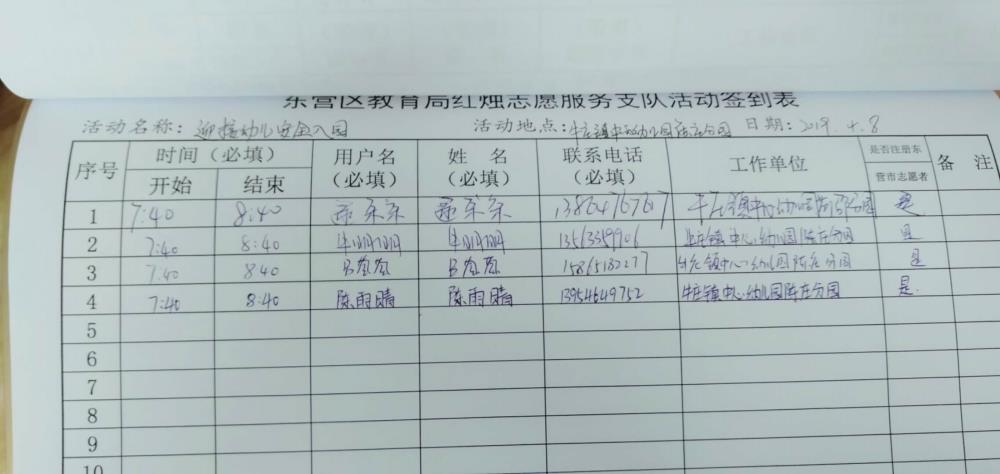 东营区教育局红烛志愿服务支队活动签到表
活动名称：迎接幼儿安全入园 活动地点：牛庄镇中心幼儿园陈庄分园 日期：2019.4.8
序号 时间（必填） 用户名（必填） 姓名（必填） 联系电话（必填） 工作单位 是否注册东营市志愿者 备注
开始 结束
1 7:40 8:40 是
2 7:40 8:40 牛明明 牛明明 牛庄镇中心幼儿园陈庄分园 是
3 7:40 840 15865182277 牛庄镇中心幼儿园陈庄分园 是
4 7:40 8:40 陈雨晴 陈雨晴 13954649752 牛庄镇中心幼儿园陈庄分园 是
5
6
7
8
9
10